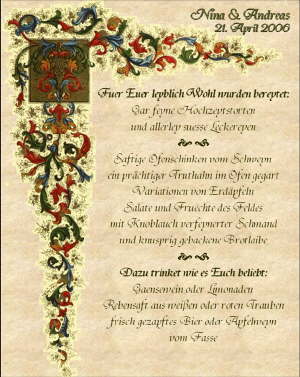 Nina & Andreas
21. April 2006
Fuer Euer leyblich Wohl wurden bereytet:
Gar feyne Hochzeytstorten
und allerley suesse Leckereyen
Saftige Ofenschinken vom Schweyn
ein prächtiger Truthahn im Ofen gegart
Variationen von Erdäpfeln
Salate und Fruechte des Feldes
mit Knoblauch verfeynerter Schmand
und knusprig gebackene Brotlaibe
Dazu trinket wie es Euch beliebt:
Gaensewein oder Limonaden
Rebensaft aus weißen oder roten Trauben
frisch gezapftes Bier oder Apfelweyn
vom Fasse